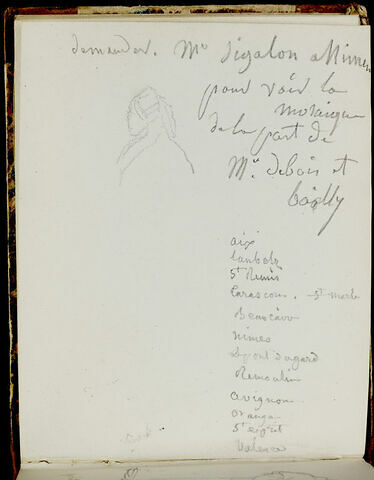 demander. Mr Sigalon a Nimes
pour voir la
mosaique
de la part de
Mr. debois et
bailly
aix
lanbesk
St Remis
Tarascon. St marthe
Beaucaire
nimes
le pont du gard
Remoulin
avignon
orange
St esprit
Valence